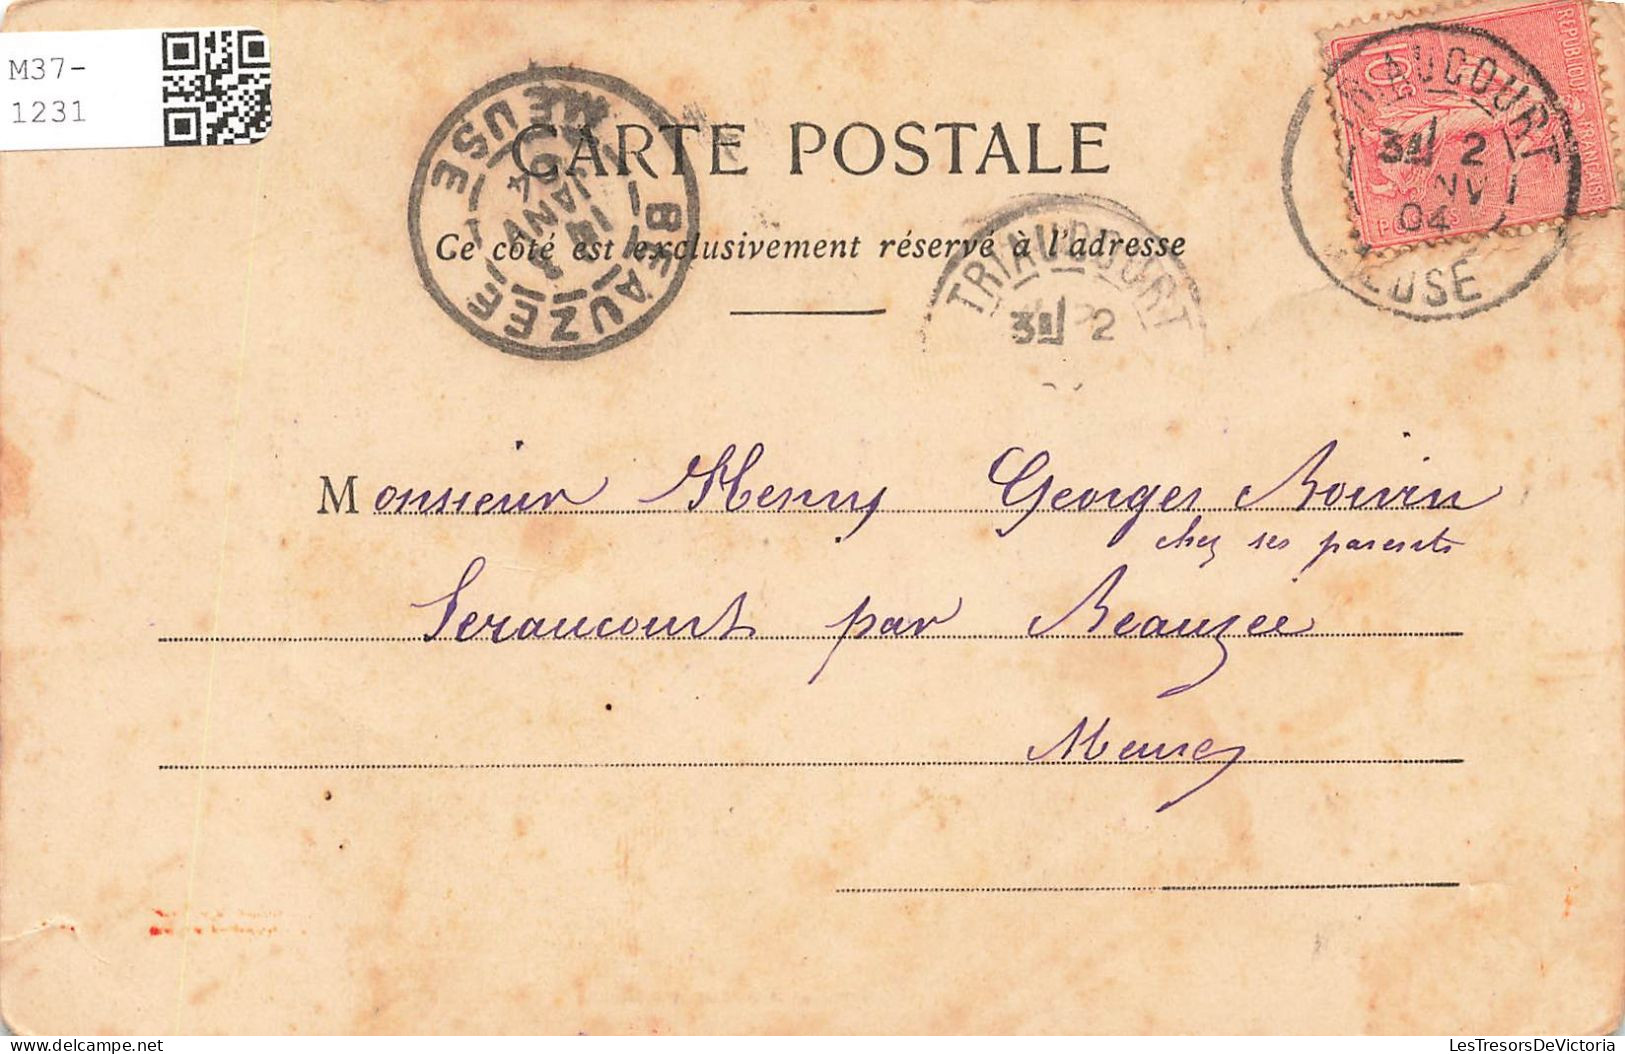 M37-
1231
CARTE POSTALE
Ce côté est exclusivement réservé à l'adresse
BEAUZEE
MEUSE
JANV
04
TRIAUCOURT
3E 2
REPUBLIQUE FRANÇAISE
10c
POSTES
TRIAUCOURT
3E 2
JANV
04
MEUSE
Monsieur Henry Georges Boivin
chez ses parents
Seraucourt par Beauzee
Meuse
LesTresorsDeVictoria
delcampe.net